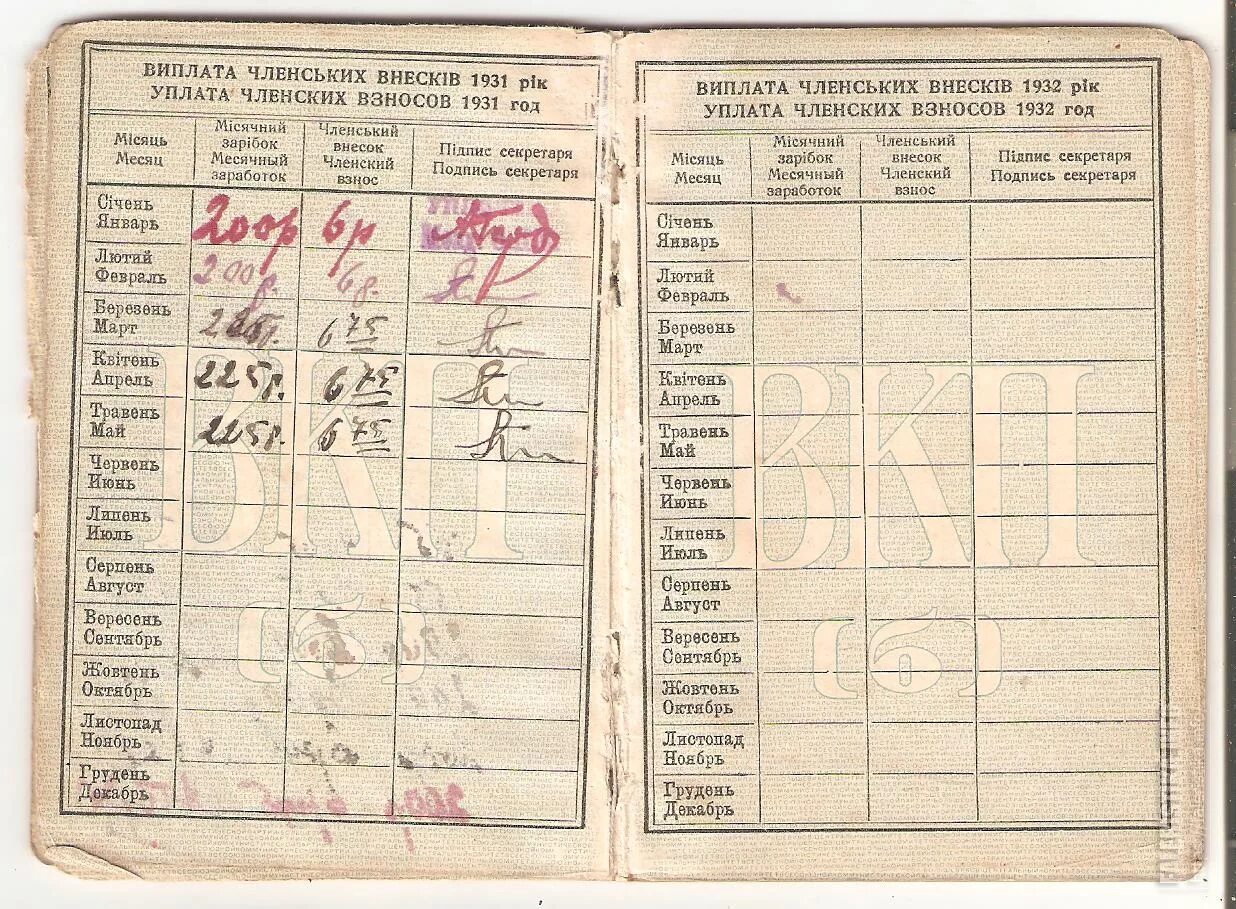 ВИПЛАТА ЧЛЕНСЬКИХ ВНЕСКІВ 1931 рік
УПЛАТА ЧЛЕНСКИХ ВЗНОСОВ 1931 год
Місяць
Месяц
Місячний
зарібок
Месячный
заработок
Членський
внесок
Членский
взнос
Підпис секретаря
Подпись секретаря
Січень
Январь
200р
6р
Лютий
Февраль
200р.
6р.
Березень
Март
6 75
Квітень
Апрель
225р.
6 75
Травень
Май
225р.
6 75
Червень
Июнь
Липень
Июль
Серпень
Август
Вересень
Сентябрь
Жовтень
Октябрь
Листопад
Ноябрь
Грудень
Декабрь
ВКП
(б)
ВИПЛАТА ЧЛЕНСЬКИХ ВНЕСКІВ 1932 рік
УПЛАТА ЧЛЕНСКИХ ВЗНОСОВ 1932 год
Місяць
Месяц
Місячний
зарібок
Месячный
заработок
Членський
внесок
Членский
взнос
Підпис секретаря
Подпись секретаря
Січень
Январь
Лютий
Февраль
Березень
Март
Квітень
Апрель
Травень
Май
Червень
Июнь
Липень
Июль
Серпень
Август
Вересень
Сентябрь
Жовтень
Октябрь
Листопад
Ноябрь
Грудень
Декабрь
ВКП
(б)